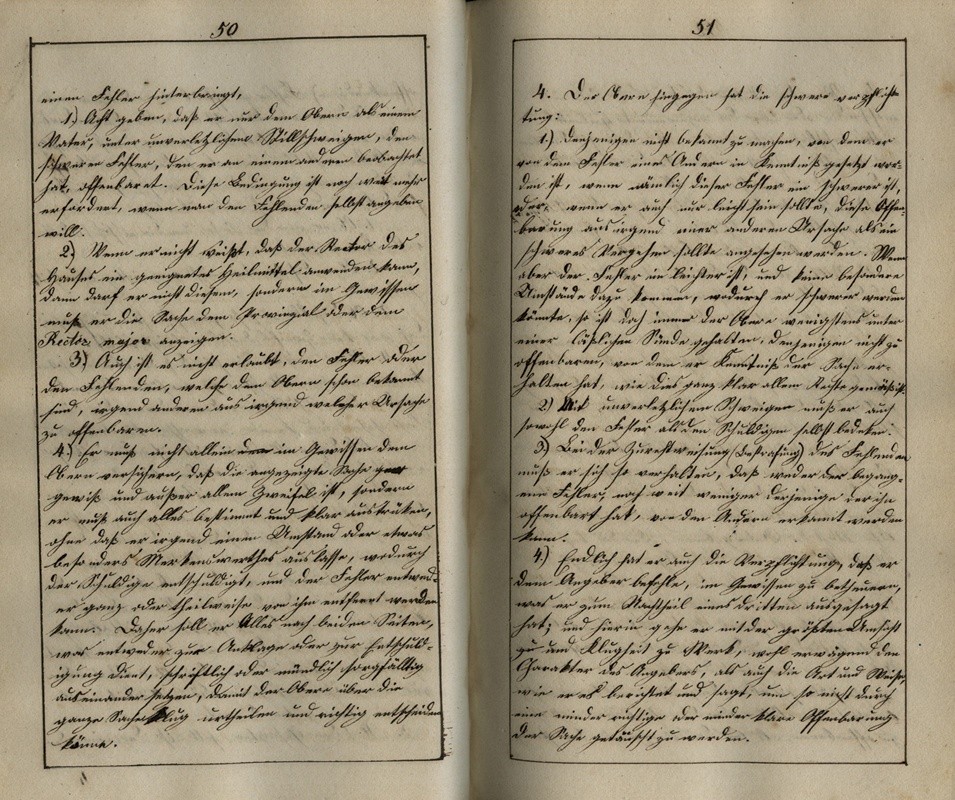 50
einen Fehler hinterbringt,
1.) Acht geben, daß er nur dem Obern als einem
Vater, unter unverletzlichem Stillschweigen, den
schweren Fehler, den er an einem anderen beobachtet
hat, offenbaret. Diese Bedingung ist noch weit mehr
erfordert, wenn man den Fehlenden selbst angeben
will.
2.) Wenn er nicht weißt, daß der Rector des
Hauses ein geeignetes Heilmittel anwenden kann,
dann darf er nicht diesem, sondern im Gewissen
muß er die Sache dem Provinzial oder dem
Rector major anzeigen.
3.) Auch ist es nicht erlaubt, den Fehler oder
den Fehlenden, welche dem Obern schon bekannt
sind, irgend anderen aus irgend welcher Ursache
zu offenbaren.
4.) Er muß nicht allein im Gewissen dem
Obern versichern, daß die angezeigte Sache ganz
gewiß und außer allem Zweifel ist, sondern
er muß auch alles bestimmt und klar ausdrücken,
ohne daß er irgend einen Umstand oder etwas
besonders Merkenswerthes auslasse, wodurch
der Schuldige entschuldigt, und der Fehler entwed-
er ganz oder theilweise von ihm entfernt werden
kann. Daher soll er Alles nach beiden Seiten,
was entweder zur Anklage oder zur Entschuld-
igung dient, schriftlich oder mündlich sorgfältig
auseinander setzen, damit der Obere über die
ganze Sache klug urtheilen und richtig entscheiden
könne.
51
4. Der Obere hingegen hat die schwere verpflich-
tung:
1.) Denjenigen nicht bekannt zu machen, von dem er
von dem Fehler eines Andern in Kenntniß gesetzt wor-
den ist, wenn nämlich dieser Fehler ein schwerer ist,
oder, wenn er auch nur leicht sein sollte, diese Offen-
barung aus irgend einer anderen Ursache als ein
schweres Vergehen sollte angesehen werden. Wenn
aber der Fehler ein leichter ist, und keine besondere
Umstände dazu kommen, wodurch er schwerer werden
könnte, so ist doch immer der Obere wenigstens unter
einer läßlichen Sünde gehalten, denjenigen nicht zu
offenbaren, von dem er Kenntniß der Sache er-
halten hat, wie dies ganz klar allem Rechte gemäß ist.
2) Mit unverletzlichem Schweigen muß er auch
sowohl den Fehler als den Schuldigen selbst bedecken.
3) Bei der Zurechtweisung (Bestrafung) des Fehlenden
muß er sich so verhalten, daß weder der begang-
ene Fehler, noch weit weniger derjenige der ihn
offenbart hat, von den Andern erkannt werden
kann.
4) Endlich hat er auch die Verpflichtung, daß er
dem Angeber befehle, im Gewissen zu betheuern,
was er zum Nachtheil eines dritten ausgesagt
hat; und hierin gehe er mit der größten Umsicht
und Klugheit zu Werk, wohl erwägend den
Charakter des Angebers, als auch die Art und Weise,
wie er es berichtet und sagt, um so nicht durch
eine minder richtige oder minder klare Offenbarung
der Sache getäuscht zu werden.